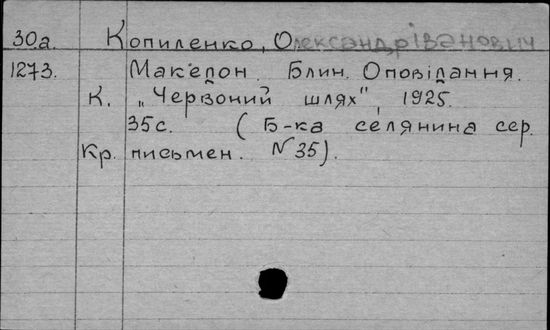 30а. Копиленко, Олександр Іванович
1273. Мак'едон. Блин. Оповідання.
К. „Червоний шлях", 1925.
35с. (Б-ка селянина сер.
Кр. письмен. №35).